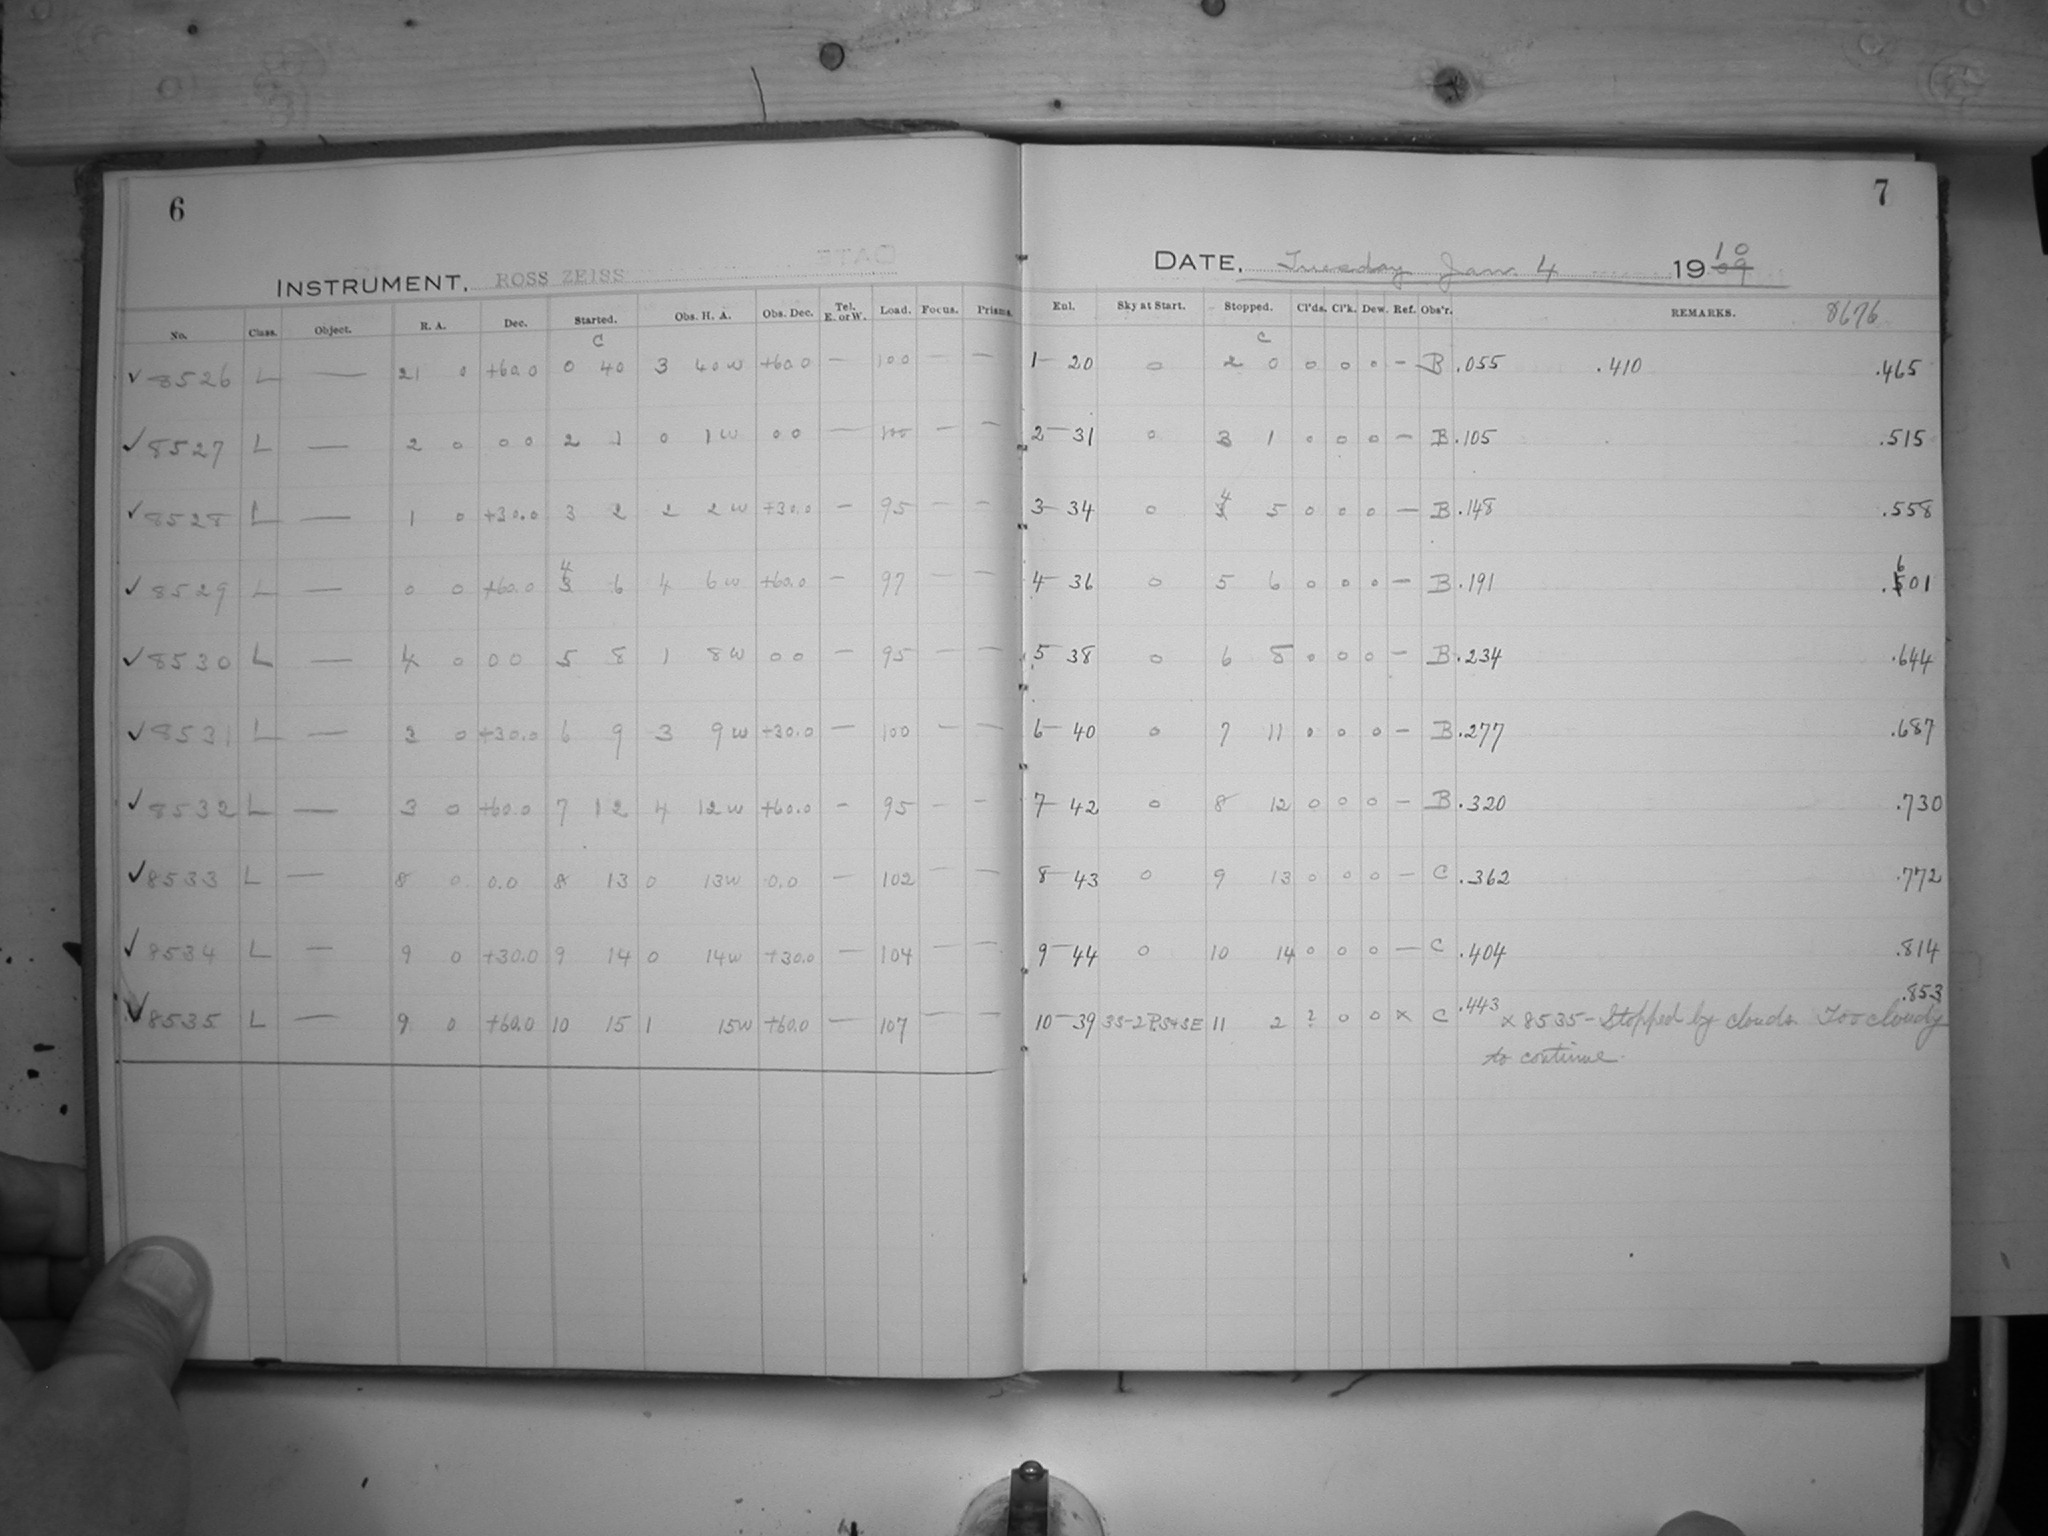 6
7
INSTRUMENT, ROSS ZEISS
DATE, Tuesday Jan. 4 1909 10
No. Class. Object. R. A. Dec. Started. Obs. H. A. Obs. Dec. Tel. E. or W. Load. Focus. Prisms. Enl. Sky at Start. Stopped. Cl'ds. Cl'k. Dew. Ref. Obs'r. REMARKS. 8676
C C
✓ 8526 L — 21 0 +60.0 0 40 3 40w +60.0 — 100 — — 1— 20 0 2 0 0 0 0 — B .055 .410 .465
✓ 8527 L — 2 0 0 0 2 1 0 1w 0 0 — 100 — — 2— 31 0 3 1 0 0 0 — B .105 .515
✓ 8528 L — 1 0 +30.0 3 2 2 2w +30.0 — 95 — — 3— 34 0 4 5 0 0 0 — B .148 .558
✓ 8529 L — 0 0 +60.0 4 6 4 6w +60.0 — 97 — — 4— 36 0 5 6 0 0 0 — B .191 .601
✓ 8530 L — 4 0 0 0 5 8 1 8w 0 0 — 95 — — 5 38 0 6 8 0 0 0 — B .234 .644
✓ 8531 L — 3 0 +30.0 6 9 3 9w +30.0 — 100 — — 6— 40 0 7 11 0 0 0 — B .277 .687
✓ 8532 L — 3 0 +60.0 7 12 4 12w +60.0 — 95 — — 7— 42 0 8 12 0 0 0 — B .320 .730
✓ 8533 L — 8 0 0.0 8 13 0 13w 0.0 — 102 — — 8— 43 0 9 13 0 0 0 — C .362 .772
✓ 8534 L — 9 0 +30.0 9 14 0 14w +30.0 — 104 — — 9— 44 0 10 14 0 0 0 — C .404 .814
✓ 8535 L — 9 0 +60.0 10 15 1 15w +60.0 — 107 — — 10— 39 3S-2 11 2 ? 0 0 x C .443 .853
x 8535 - Stopped by clouds. Too cloudy
to continue.